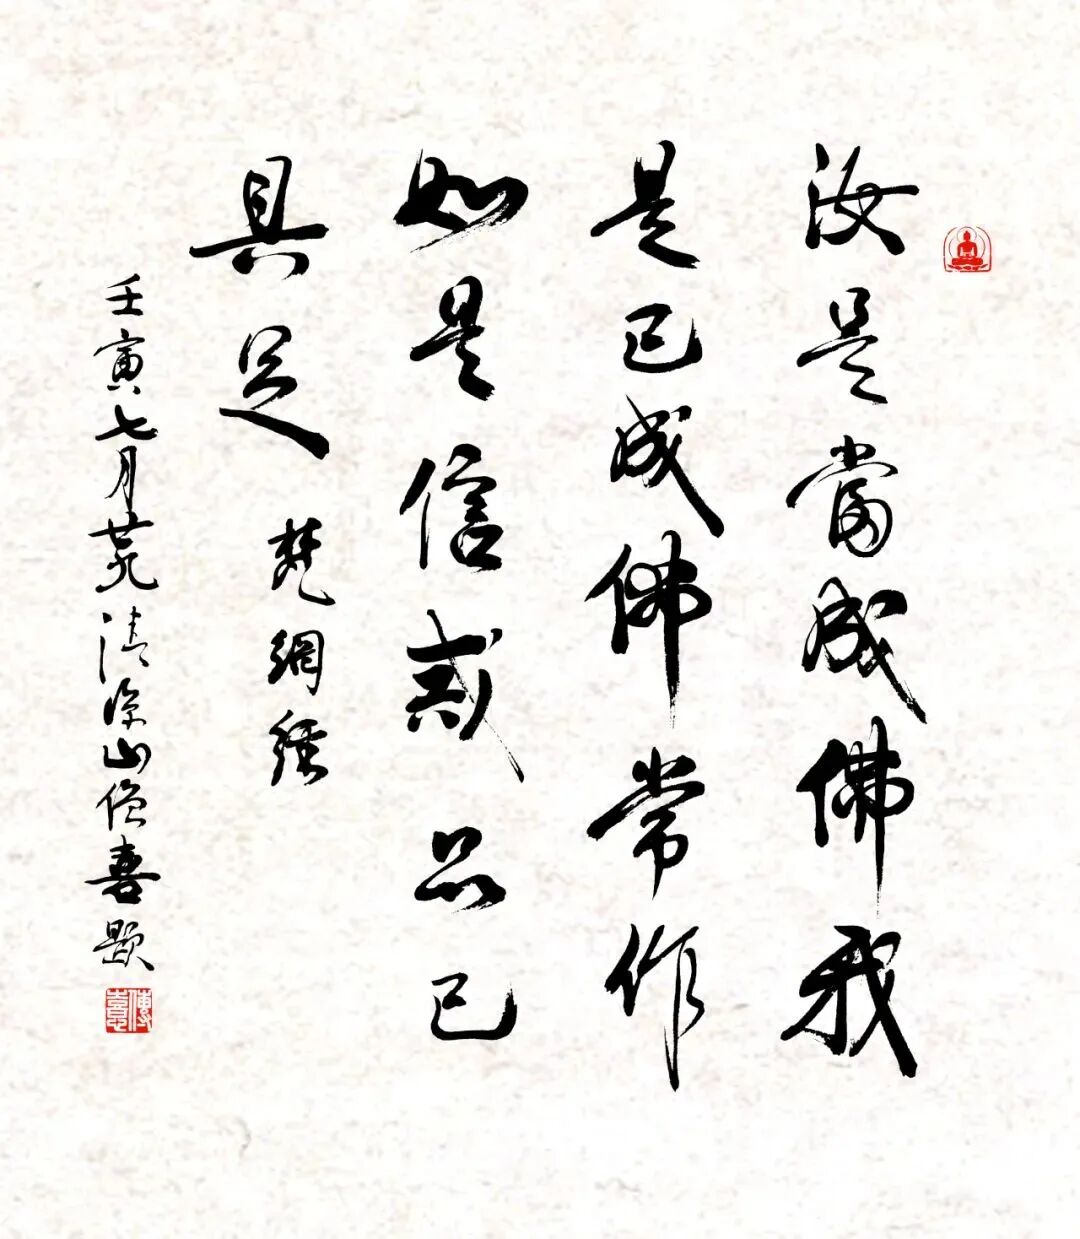 汝是當成佛我
是已成佛常作
如是信戒品已
具足 梵網經
壬寅七月廿九清涼山僧喜題
傳憙